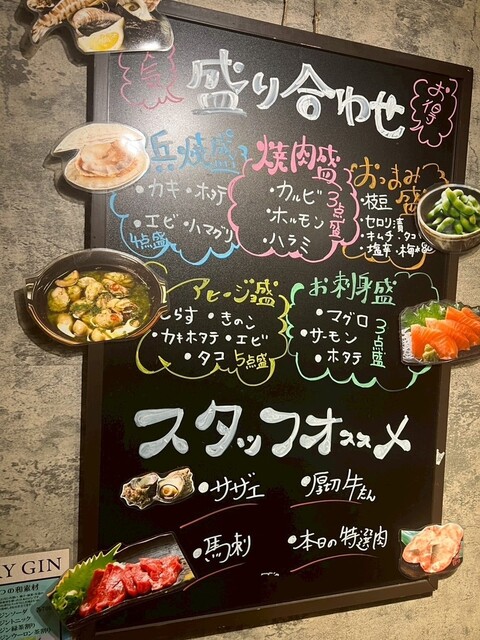 盛り合わせ
お得
浜焼盛
・カキ・ホタテ
・エビ・ハマグリ
4点盛
焼肉盛
・カルビ
・ホルモン
・ハラミ
3点盛
おつまみ盛
・枝豆
・セロリ漬
・キムチ・タコ
・塩辛・梅
アヒージョ盛
らす・きのこ
・カキホタテ・エビ
・タコ
5点盛
お刺身盛
・マグロ
・サーモン
・ホタテ
3点盛
スタッフオススメ
・サザエ
・厚切牛たん
・馬刺
・本日の特選肉
Y GIN
つの和素材
ジンソーダ
ジントニック
ジン緑茶割り
ジンウーロン茶割り